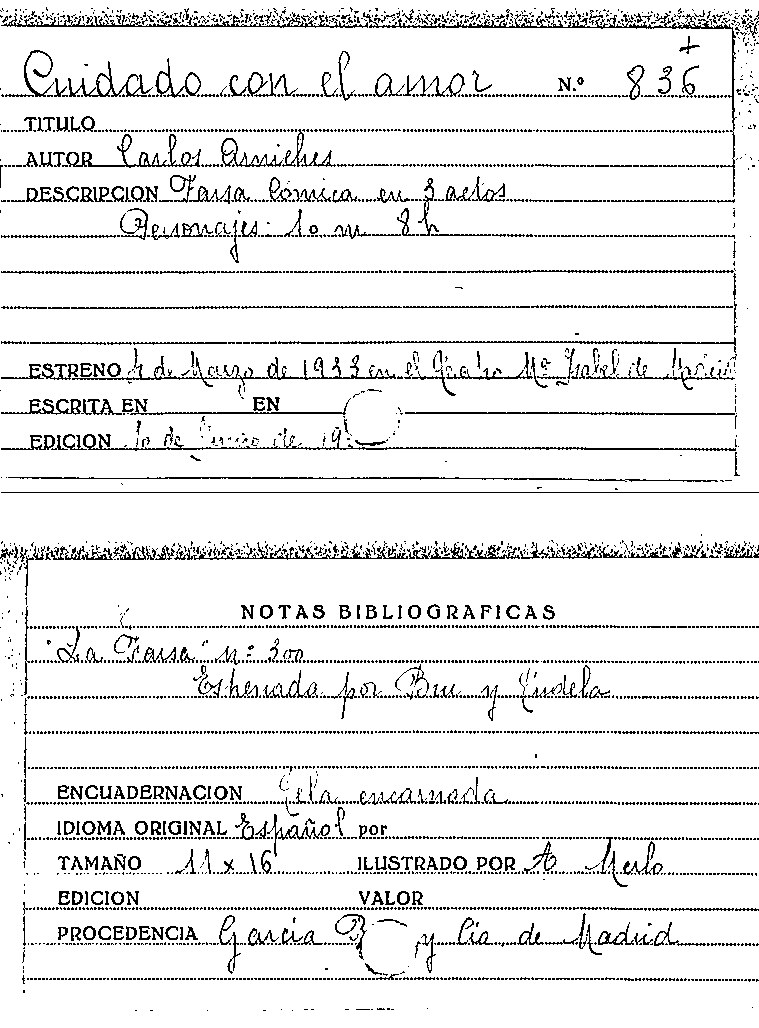 Cuidado con el amor N.º 836
+
TITULO
AUTOR Carlos Arniches
DESCRIPCION Farsa Cómica en 3 actos
Personajes: 10 m 8 h
ESTRENO 4 de Marzo de 1933 en el Teatro Mª Isabel de Madrid
ESCRITA EN EN
EDICION 10 de de 19
NOTAS BIBLIOGRAFICAS
"La Farsa" nº 300
Estrenada por Bru y
ENCUADERNACION Tela encarnada
IDIOMA ORIGINAL Español por
TAMAÑO 11 x 16 ILUSTRADO POR A Merlo
EDICION VALOR
PROCEDENCIA Garcia y Cia. de Madrid